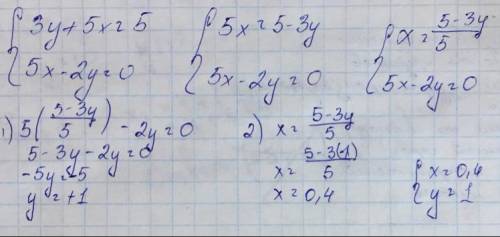 { 3y + 5x = 5
{ 5x - 2y = 0
{ 5x = 5 - 3y
{ 5x - 2y = 0
{ x = (5-3y)/5
{ 5x - 2y = 0
1) 5((5-3y)/5) - 2y = 0
5 - 3y - 2y = 0
-5y = -5
y = +1
2) x = (5-3y)/5
x = (5-3(-1))/5
x = 0,4
{ x = 0,4
{ y = 1